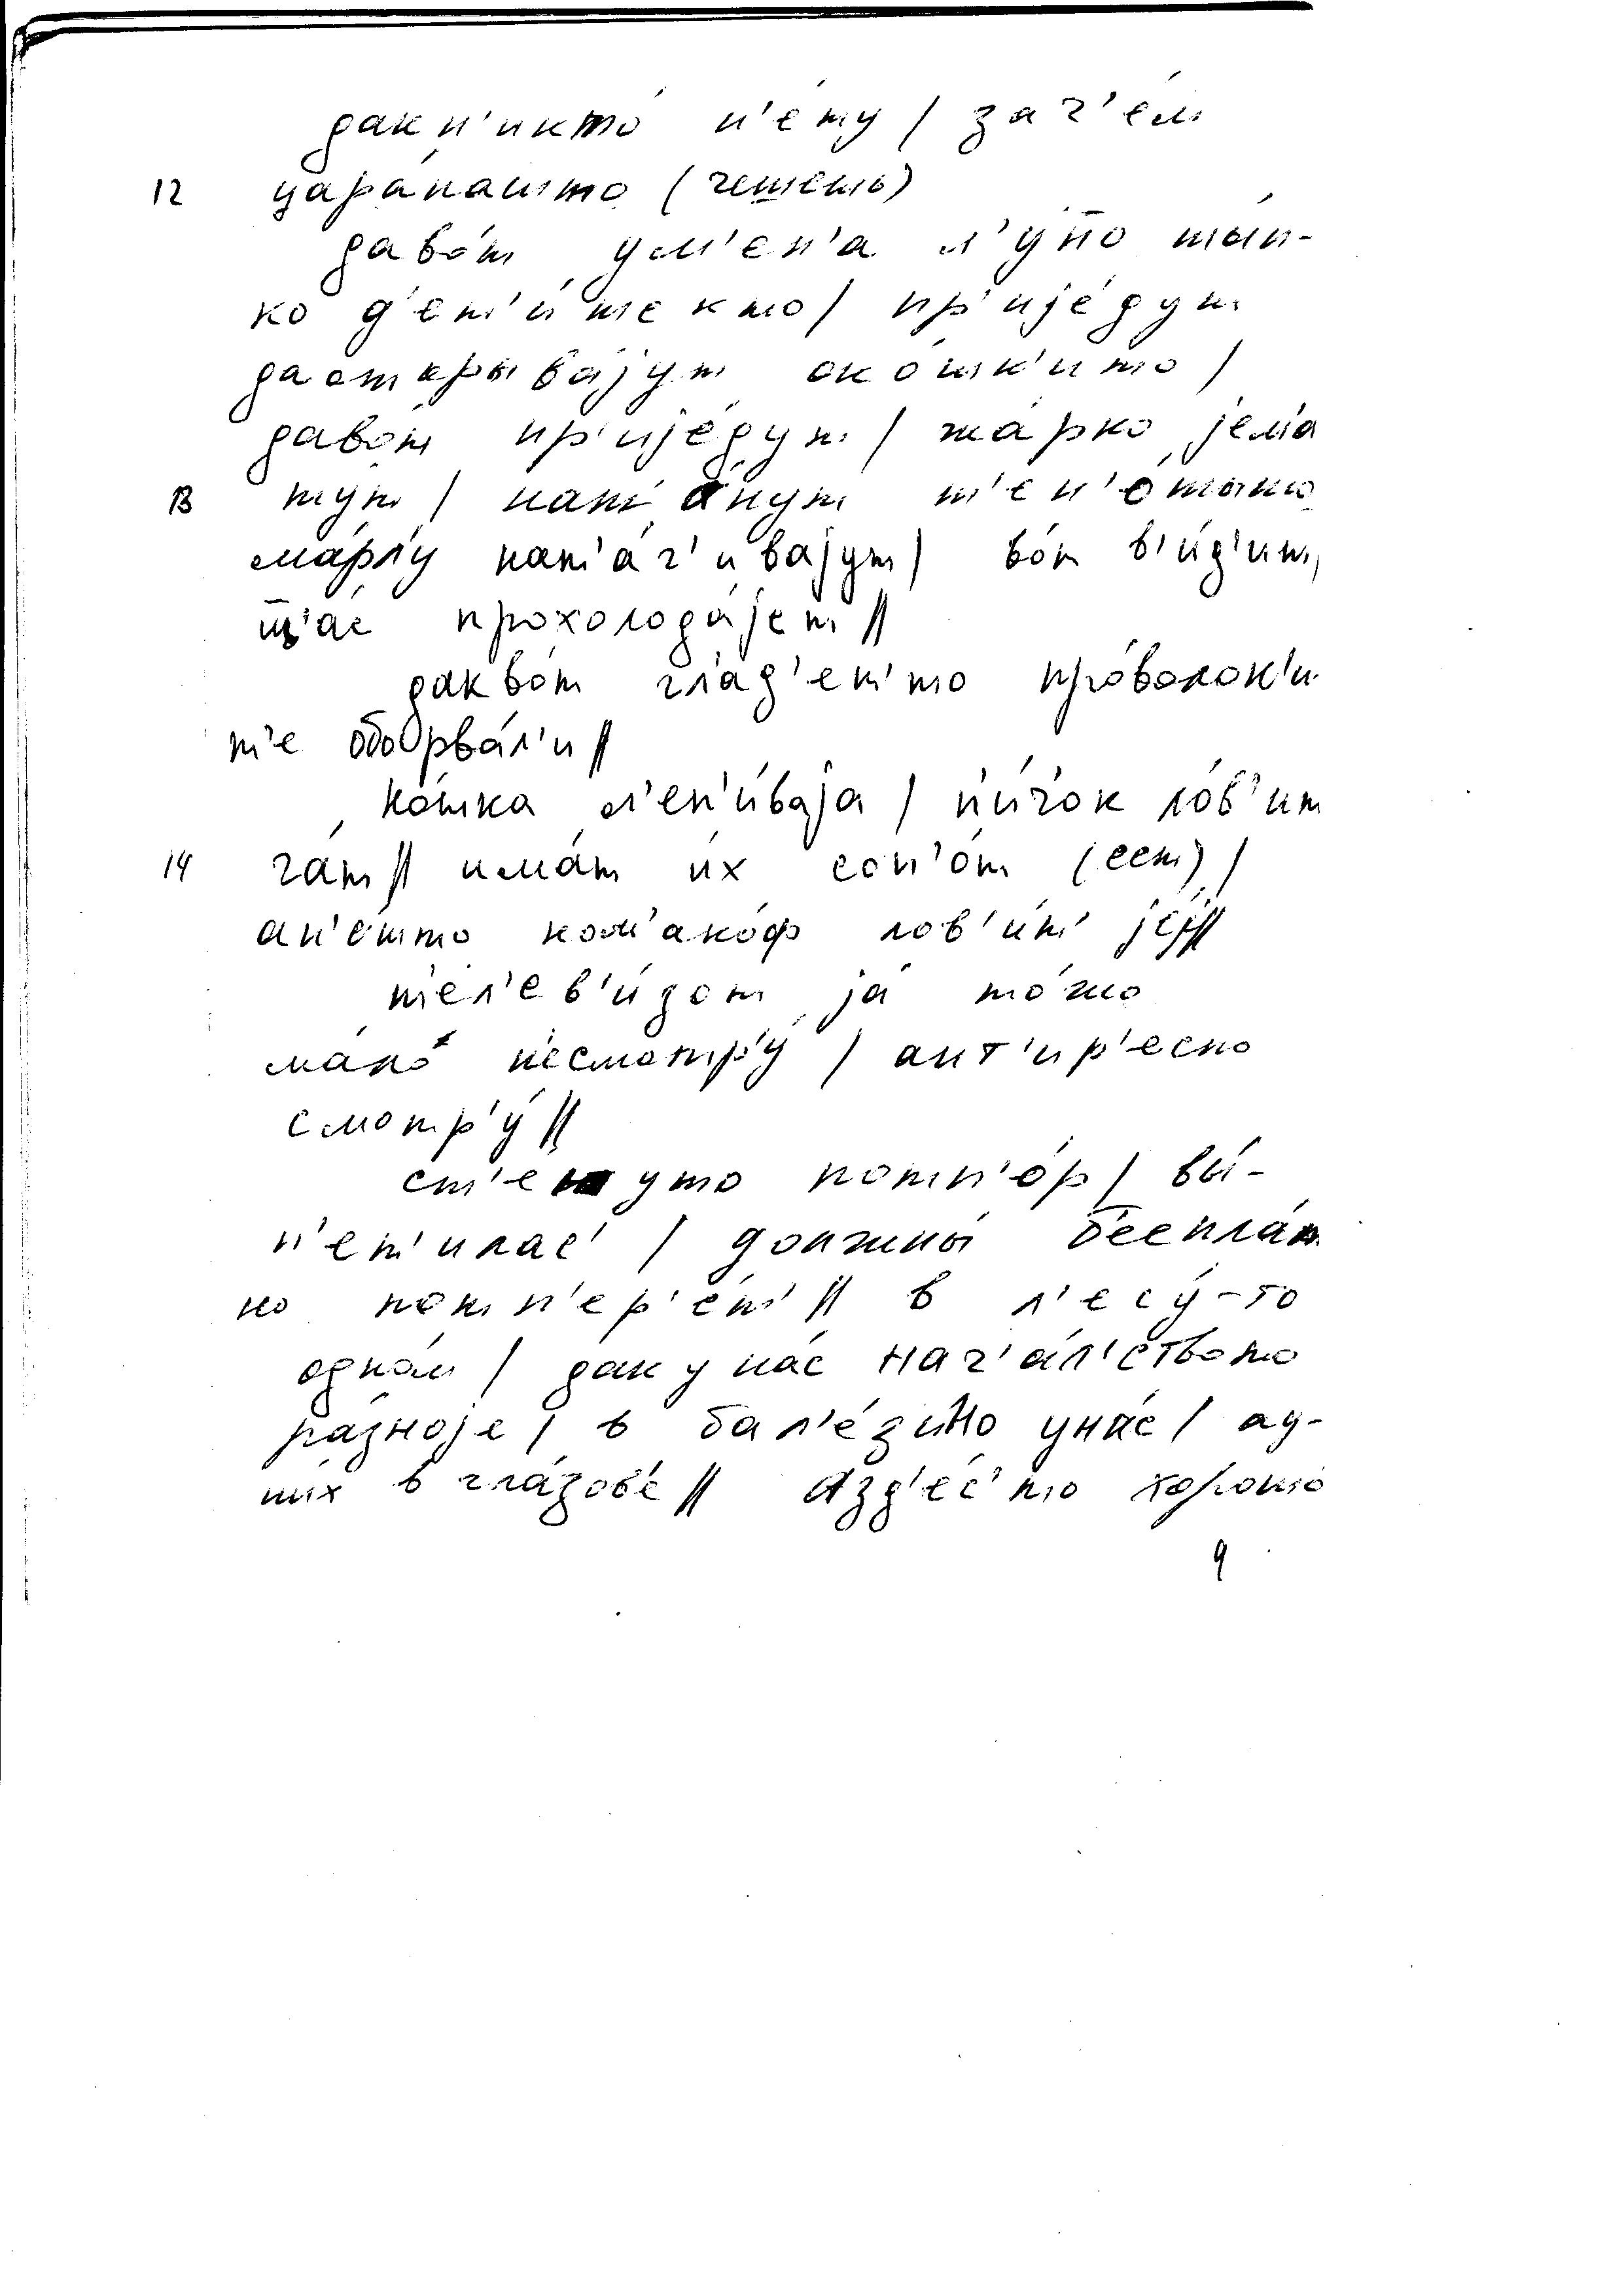 дакн'икто́ н'е́ту / зач'е́м
12 цара́пашто (чешешь)
даво́т ум'ен'а л'у́бо то́л-
ко д'ет'и́ те кто / пр'ијéдут
даоткрыва́јут око́шк'ито /
даво́т пр'ијéдут / жа́рко јел'а
13 тут / нат'а́нут т'ен'о́тыко
ма́рл'у нат'а́г'ивајут / во́т в'и́д'иш,
щ'ас прохолода́јет //
дакво́т гл'ад'ет'то про́волок'и
т'е обо́рва́л'и //
ко́шка л'ен'и́ваја / пи́чок ло́в'ит
14 га́т // има́т и́х сол'о́т (ест) /
ан'е́што кол'ако́ф лов'и́т' јеј //
т'ел'ев'и́зот ја то́жо
ма́ло н'есмотр'у́ / ант'ир'есно
смотр'у́ //
ст'ену́то потп'о́р / вы́-
п'ет'илас' / должны́ б'еспла́т
но потп'ер'е́т' // в л'есу́-то
одно́м / даку на́с нач'а́л'ството
ра́зноје / в бал'е́зино уна́с / ау-
ни́х в гла́зов'е // азд'е́с'то хорошо́
9